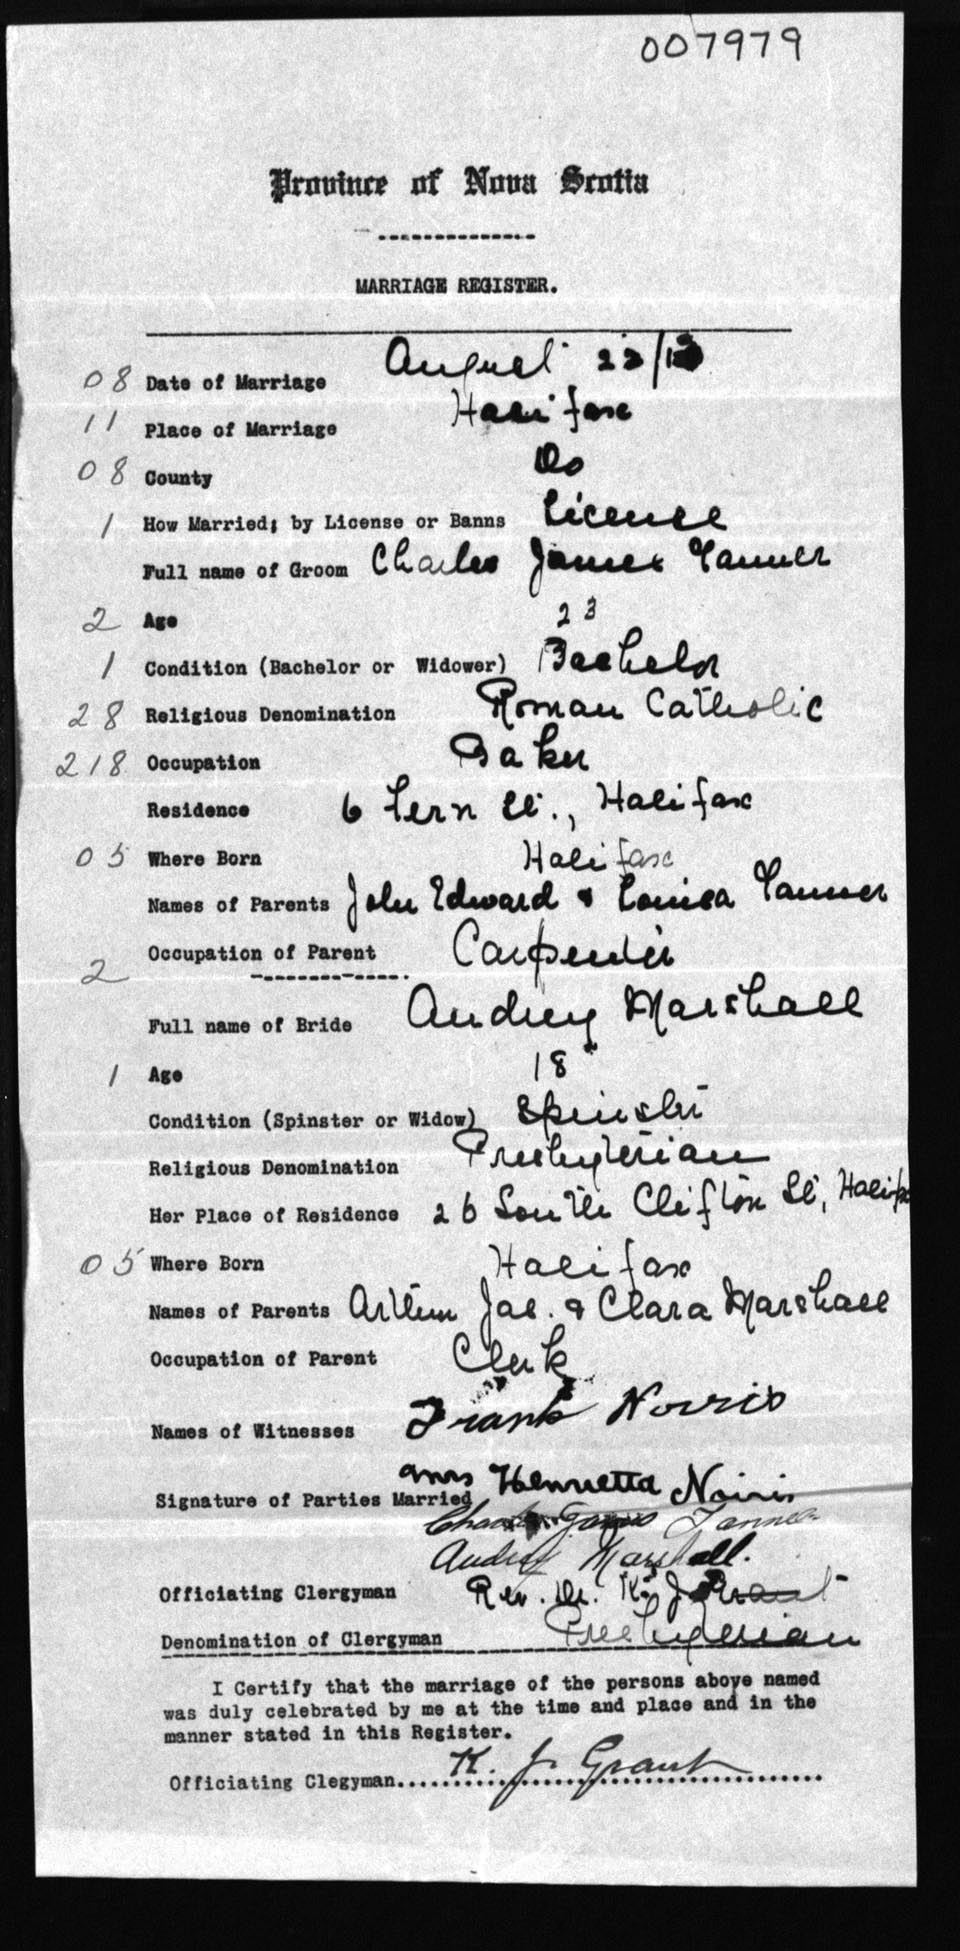 007979
Province of Nova Scotia
MARRIAGE REGISTER.
08 Date of Marriage August
11 Place of Marriage Halifax
08 County Do
1 How Married; by License or Banns License
Full name of Groom Charles James Tanner
2 Age 23
1 Condition (Bachelor or Widower) Bachelor
28 Religious Denomination Roman Catholic
218 Occupation Baker
Residence 6 Fern St., Halifax
05 Where Born Halifax
Names of Parents John Edward & Louisa Tanner
Occupation of Parent Carpenter
2
Full name of Bride Audrey Marshall
1 Age 18
Condition (Spinster or Widow) Spinster
Religious Denomination Presbyterian
Her Place of Residence 26 South Clifton St, Halifax
05 Where Born Halifax
Names of Parents Arthur Jas. & Clara Marshall
Occupation of Parent Clerk
Names of Witnesses Frank Norris
Mrs Henrietta Norris
Signature of Parties Married
Charles James Tanner
Audrey Marshall.
Officiating Clergyman Rev. Dr. K. J. Grant
Denomination of Clergyman Presbyterian
I Certify that the marriage of the persons above named
was duly celebrated by me at the time and place and in the
manner stated in this Register.
Officiating Clegyman.... K. J. Grant